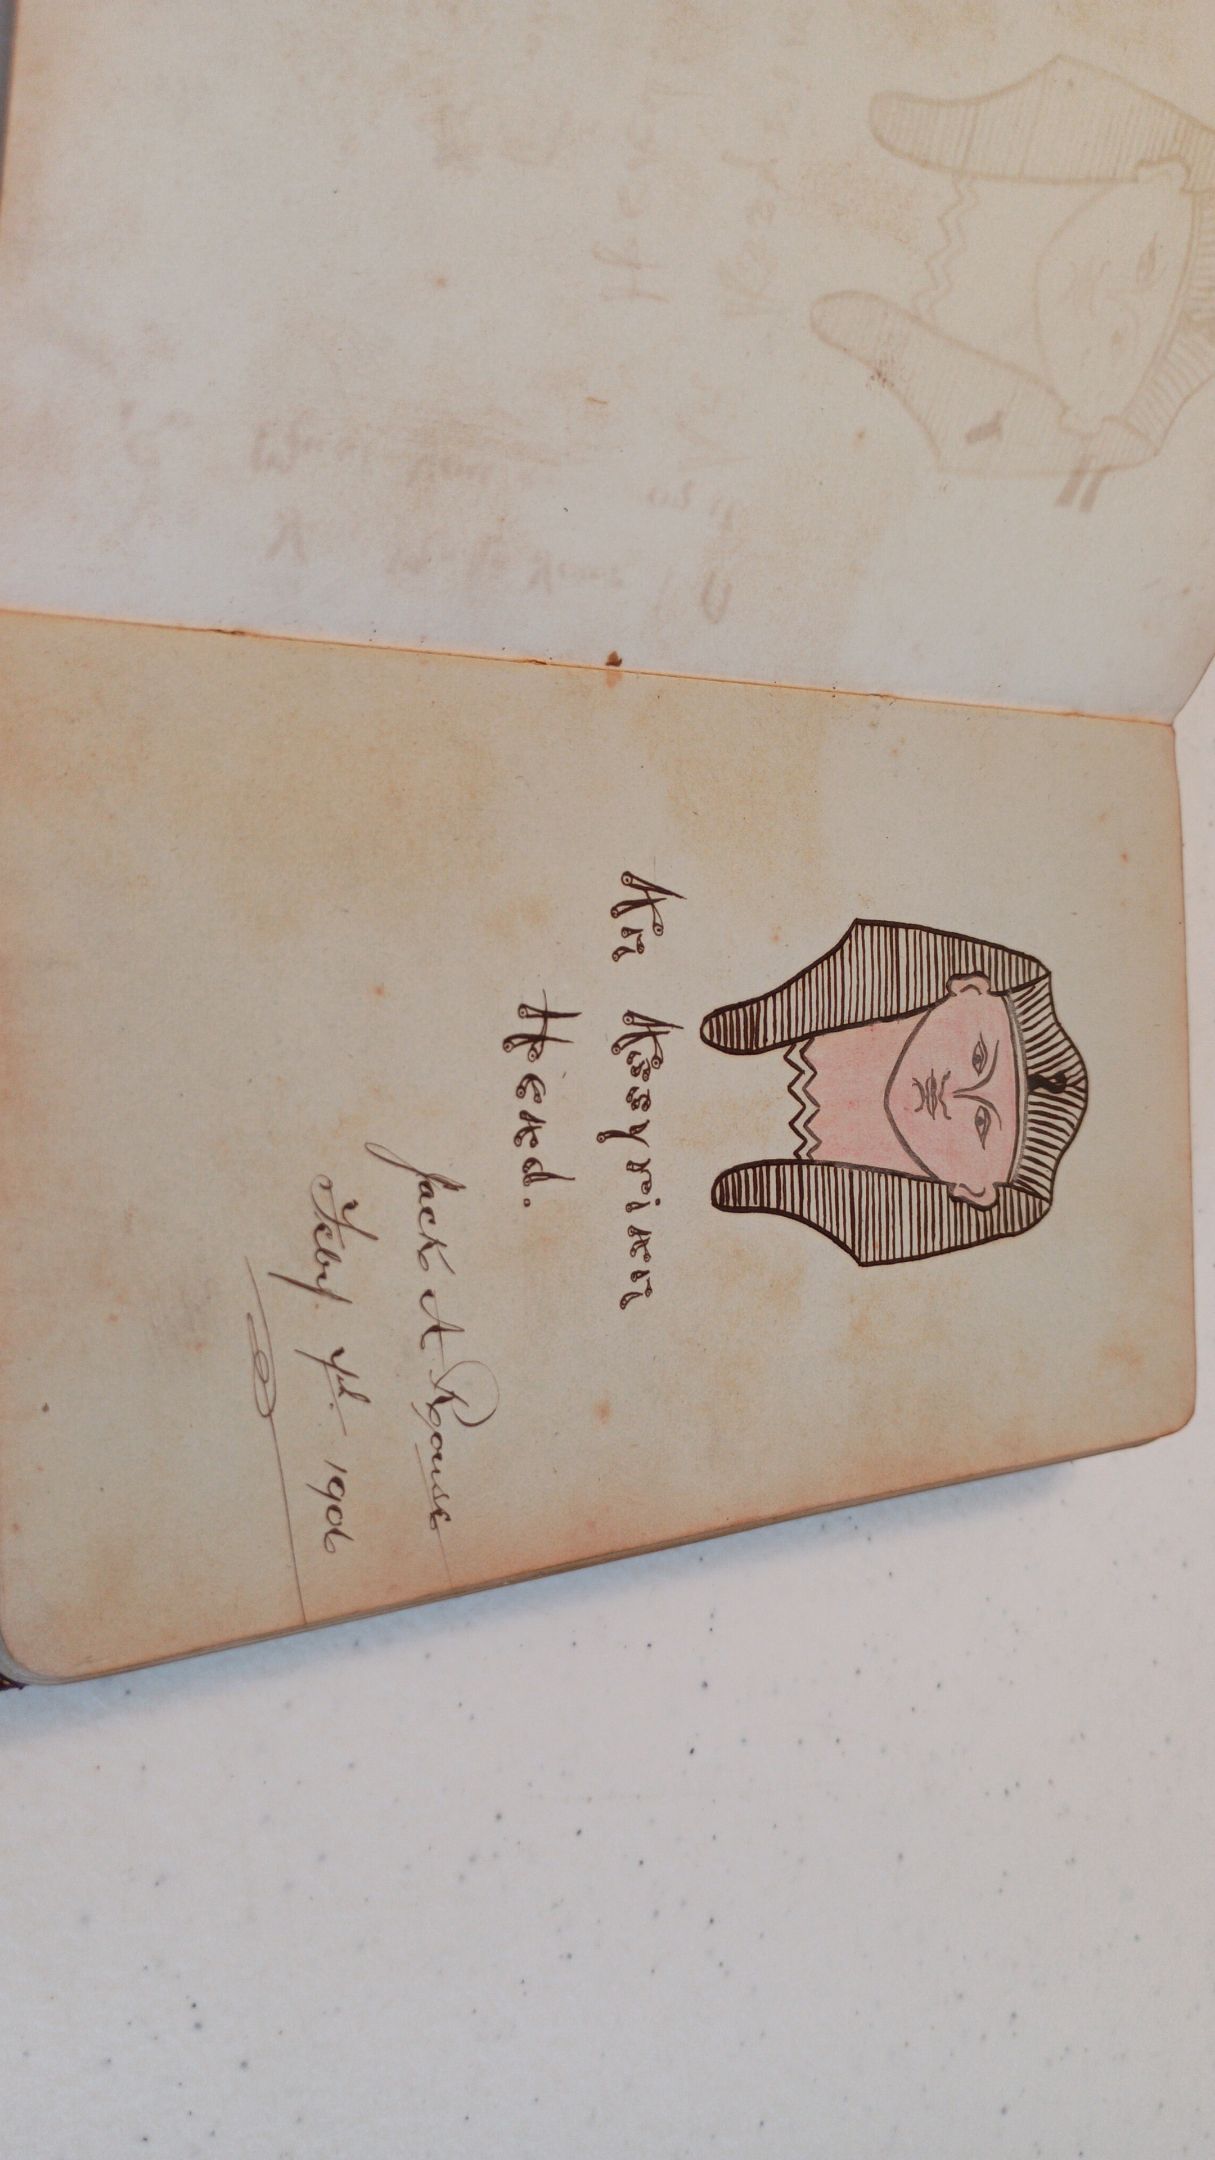 An Assyrian
Head.
Jack A Rouse
Feby 1906